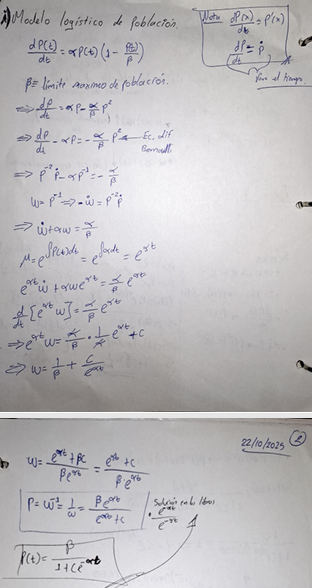 1) Modelo logístico de población.
Nota: dP(x)/dx = P'(x)
dP/dt = Ṗ
dP(t)/dt = αP(t) (1 - P(t)/β)
β = límite máximo de población.
⇒ dP/dt = αP - α/β P²
⇒ dP/dt - αP = - α/β P² ← Ec. dif Bernoulli
⇒ P⁻² Ṗ - αP⁻¹ = - α/β
W = P⁻¹ ⇒ -ẇ = P⁻² Ṗ
⇒ ẇ + αw = α/β
μ = e^∫P(t)dt = e^∫αdt = e^αt
e^αt ẇ + αw e^αt = α/β e^αt
d/dt [e^αt w] = α/β e^αt
⇒ e^αt w = α/β · 1/α e^αt + C
⇒ w = 1/β + C/e^αt
22/10/2025 2
w = (e^αt + βC)/(β e^αt) = (e^αt + C)/(β·e^αt)
P = w⁻¹ = 1/w = β e^αt/(e^αt + C) · e^-αt/e^-αt
Solución en los libros
P(t) = β/(1 + C e^-αt)